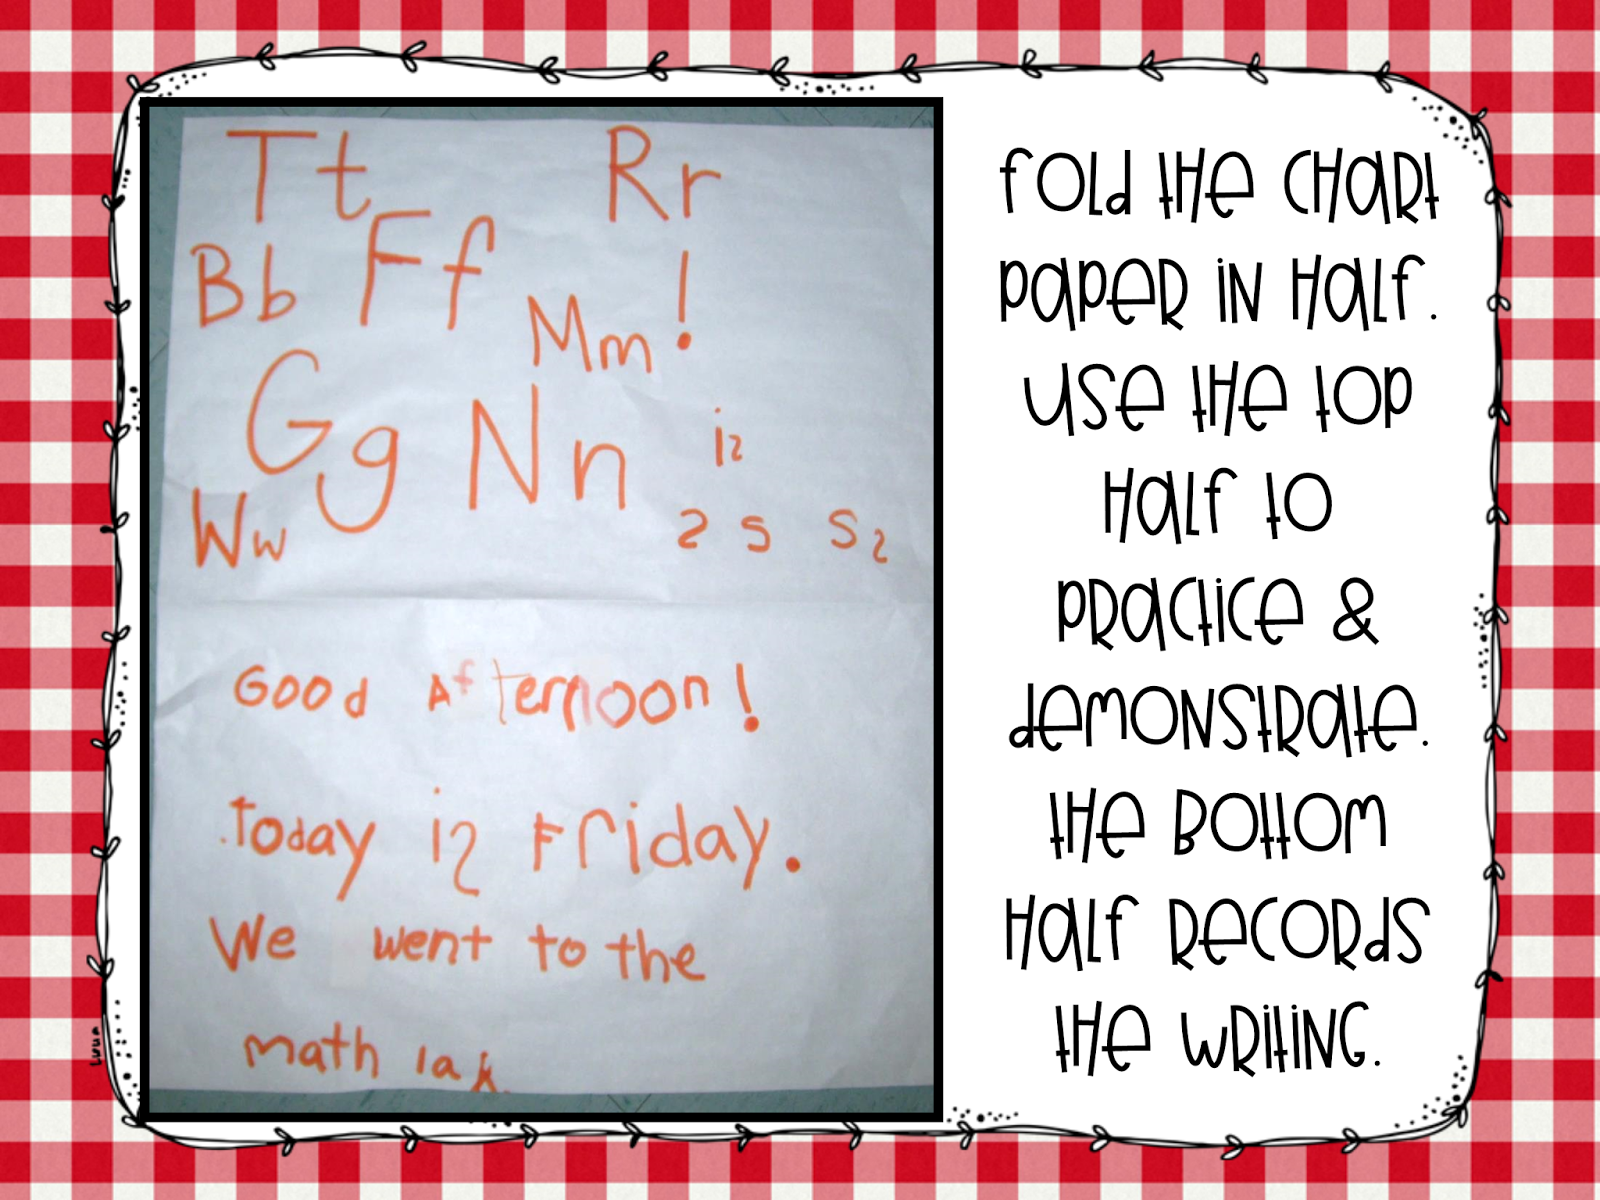 Tt Rr
Bb Ff !
Mm
Gg Nn i2
Ww 2 S S 2
Good Afternoon!
Today i2 Friday.
We went to the
math
fold the chart
paper in half.
Use the top
half to
practice &
demonstrate.
The bottom
half records
the writing.